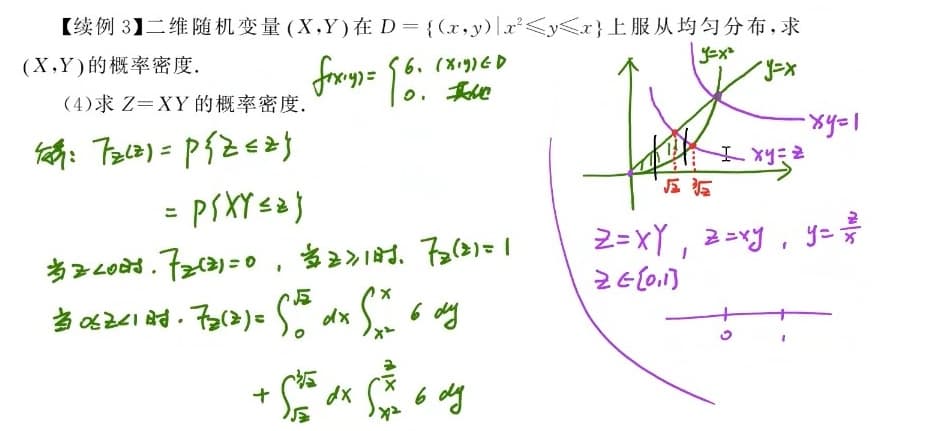 【续例 3】二维随机变量 (X,Y) 在 D = {(x,y)|x²≤y≤x} 上服从均匀分布,求
(X,Y) 的概率密度.
f(x,y) = { 6, (x,y)∈D
0, 其他
(4)求 Z=XY 的概率密度.
解: F_Z(z) = P{Z≤z}
= P{XY≤z}
当z<0时, F_Z(z)=0, 当z≥1时, F_Z(z)=1
当0≤z<1时, F_Z(z)= ∫_0^{√z} dx ∫_{x²}^{x} 6 dy
+ ∫_{√z}^{∛z} dx ∫_{x²}^{z/x} 6 dy
y=x²
y=x
xy=1
xy=z
√z ∛z
Z=XY, z=xy, y=z/x
z∈[0,1]
0 1